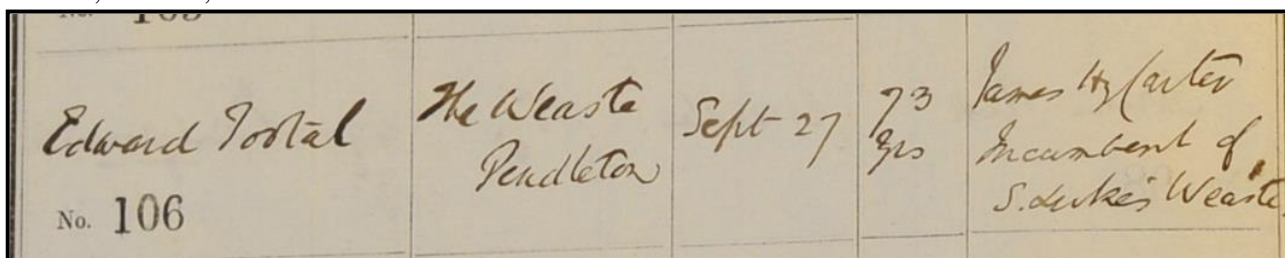 Edward Tootal
No. 106
The Weaste
Pendleton
Sept 27
73
yrs
James Hy Carter
Incumbent of
S. Luke's Weaste